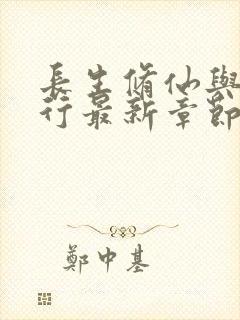 長生脩仙與
行最新章節
鄭中基